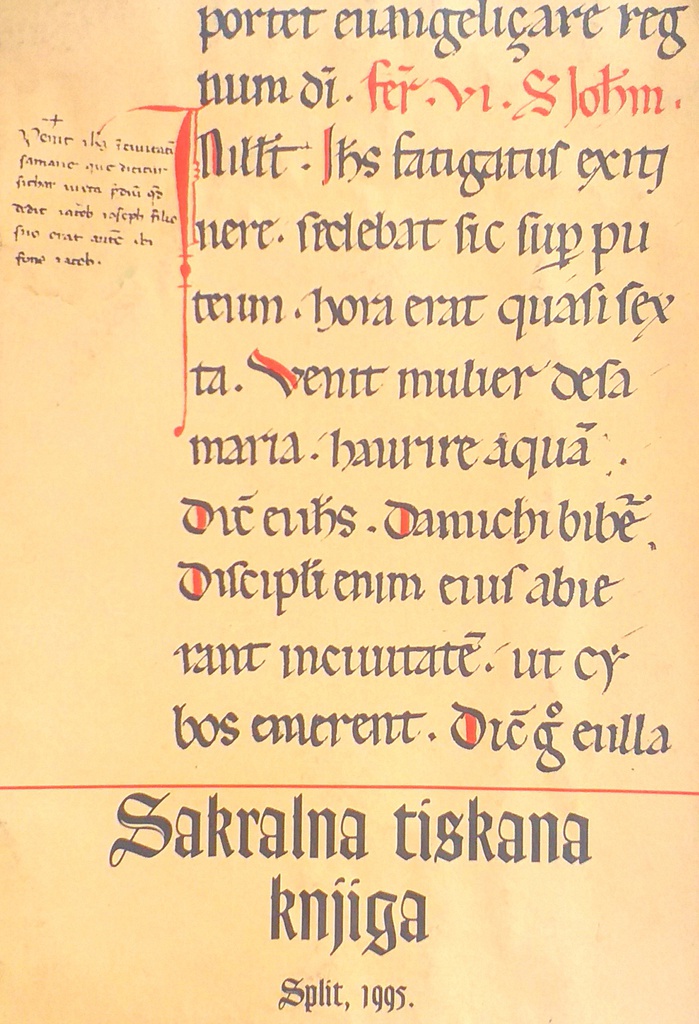 portet euangeliçare reg
num dī. fer̄. vi. S Joh̄m.
In illī t̄. Ih̄s fatigatus exitj
nere. sedebat sic sup̱ pu
teum. hora erat quasi sex
ta. Venit mulier desa
maria. haurire aquā.
Dic̄ ei ih̄s. Da michi bibē̄.
Discipl̄i enim eius abie
rant in ciuitatē. ut cy
bos emerent. Dic̄ gͦ ei illa
+
Venit ih̄s ī ciuitatē
samarie que dicitur
sichar iuxta p̄diū qḏ
dedit iacob ioseph filio
suo erat autē ibi
fons iacob.
Sakralna tiskana
knjiga
Split, 1995.